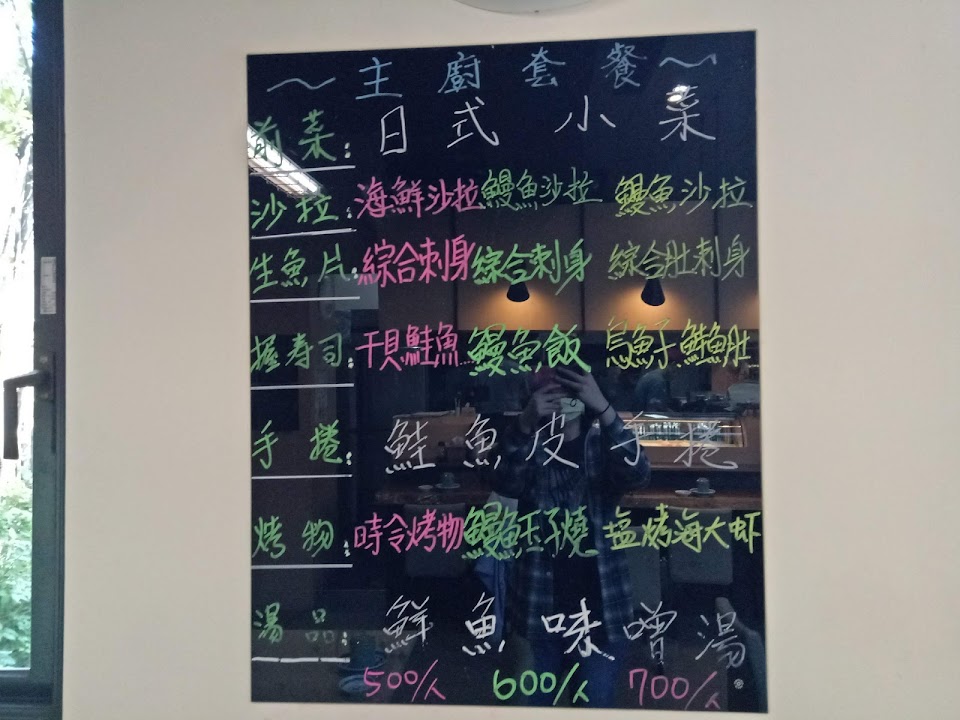 ~主廚套餐~
前菜: 日式小菜
沙拉: 海鮮沙拉 鰻魚沙拉 鰻魚沙拉
生魚片: 綜合刺身 綜合刺身 綜合肚刺身
握寿司: 干貝鮭魚 鰻魚飯 烏魚子鮭魚肚
手捲: 鮭魚皮手捲
烤物: 時令烤物 鰻魚玉子燒 塩烤海大虾
湯品: 鮮魚味噌湯
500/人 600/人 700/人